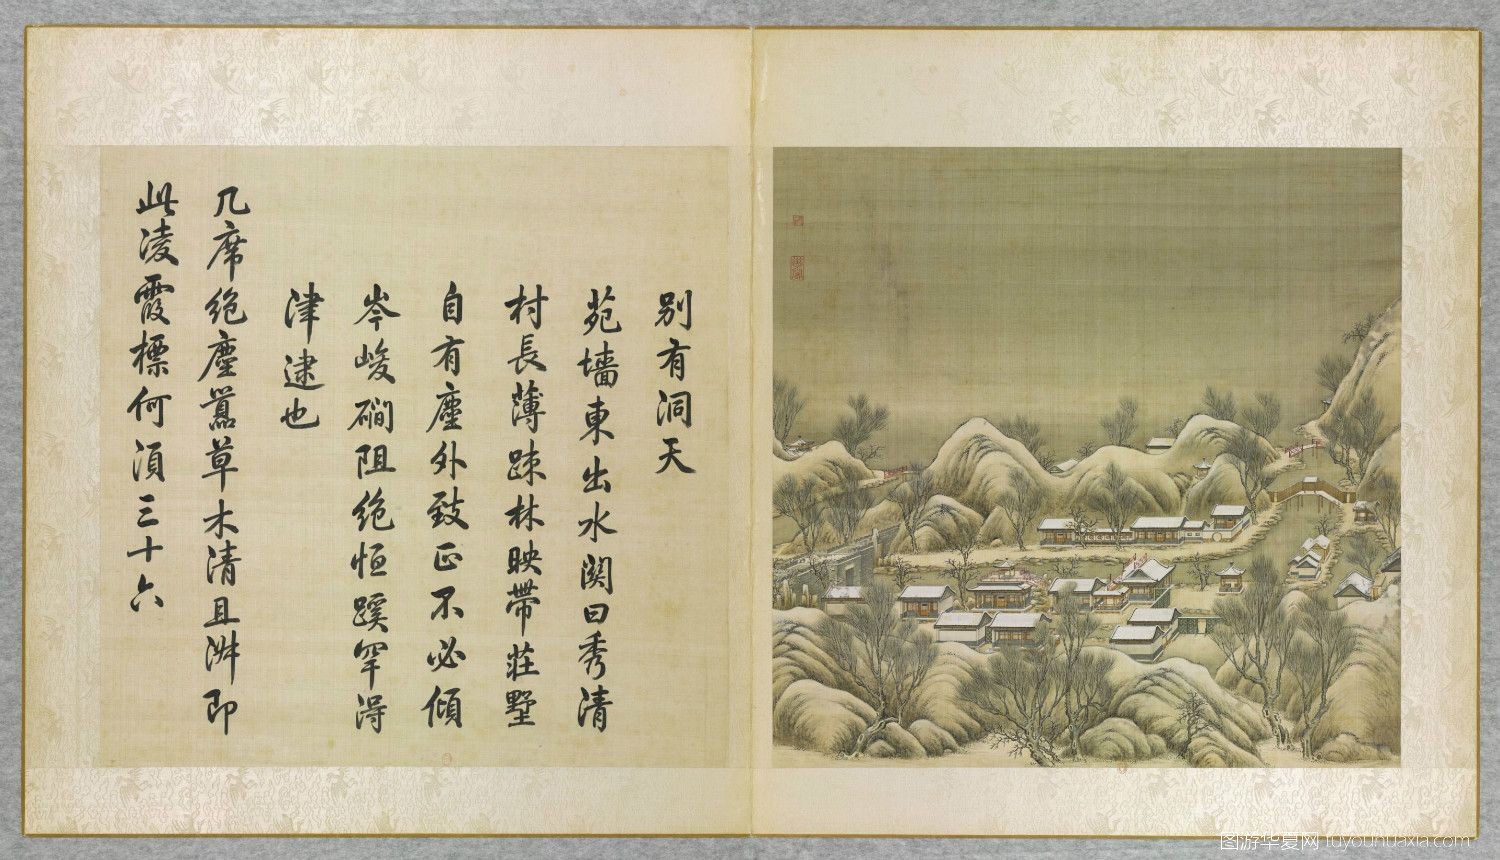 别有洞天
苑墻東出水関曰秀清
村長薄踈林映帶莊墅
自有塵外致正不必傾
岑峻磵阻絶恒蹊罕得
津逮也
几席絶塵囂草木清且淑即
此凌霞標何湏三十六
图游华夏网 tuyouhuaxia.com